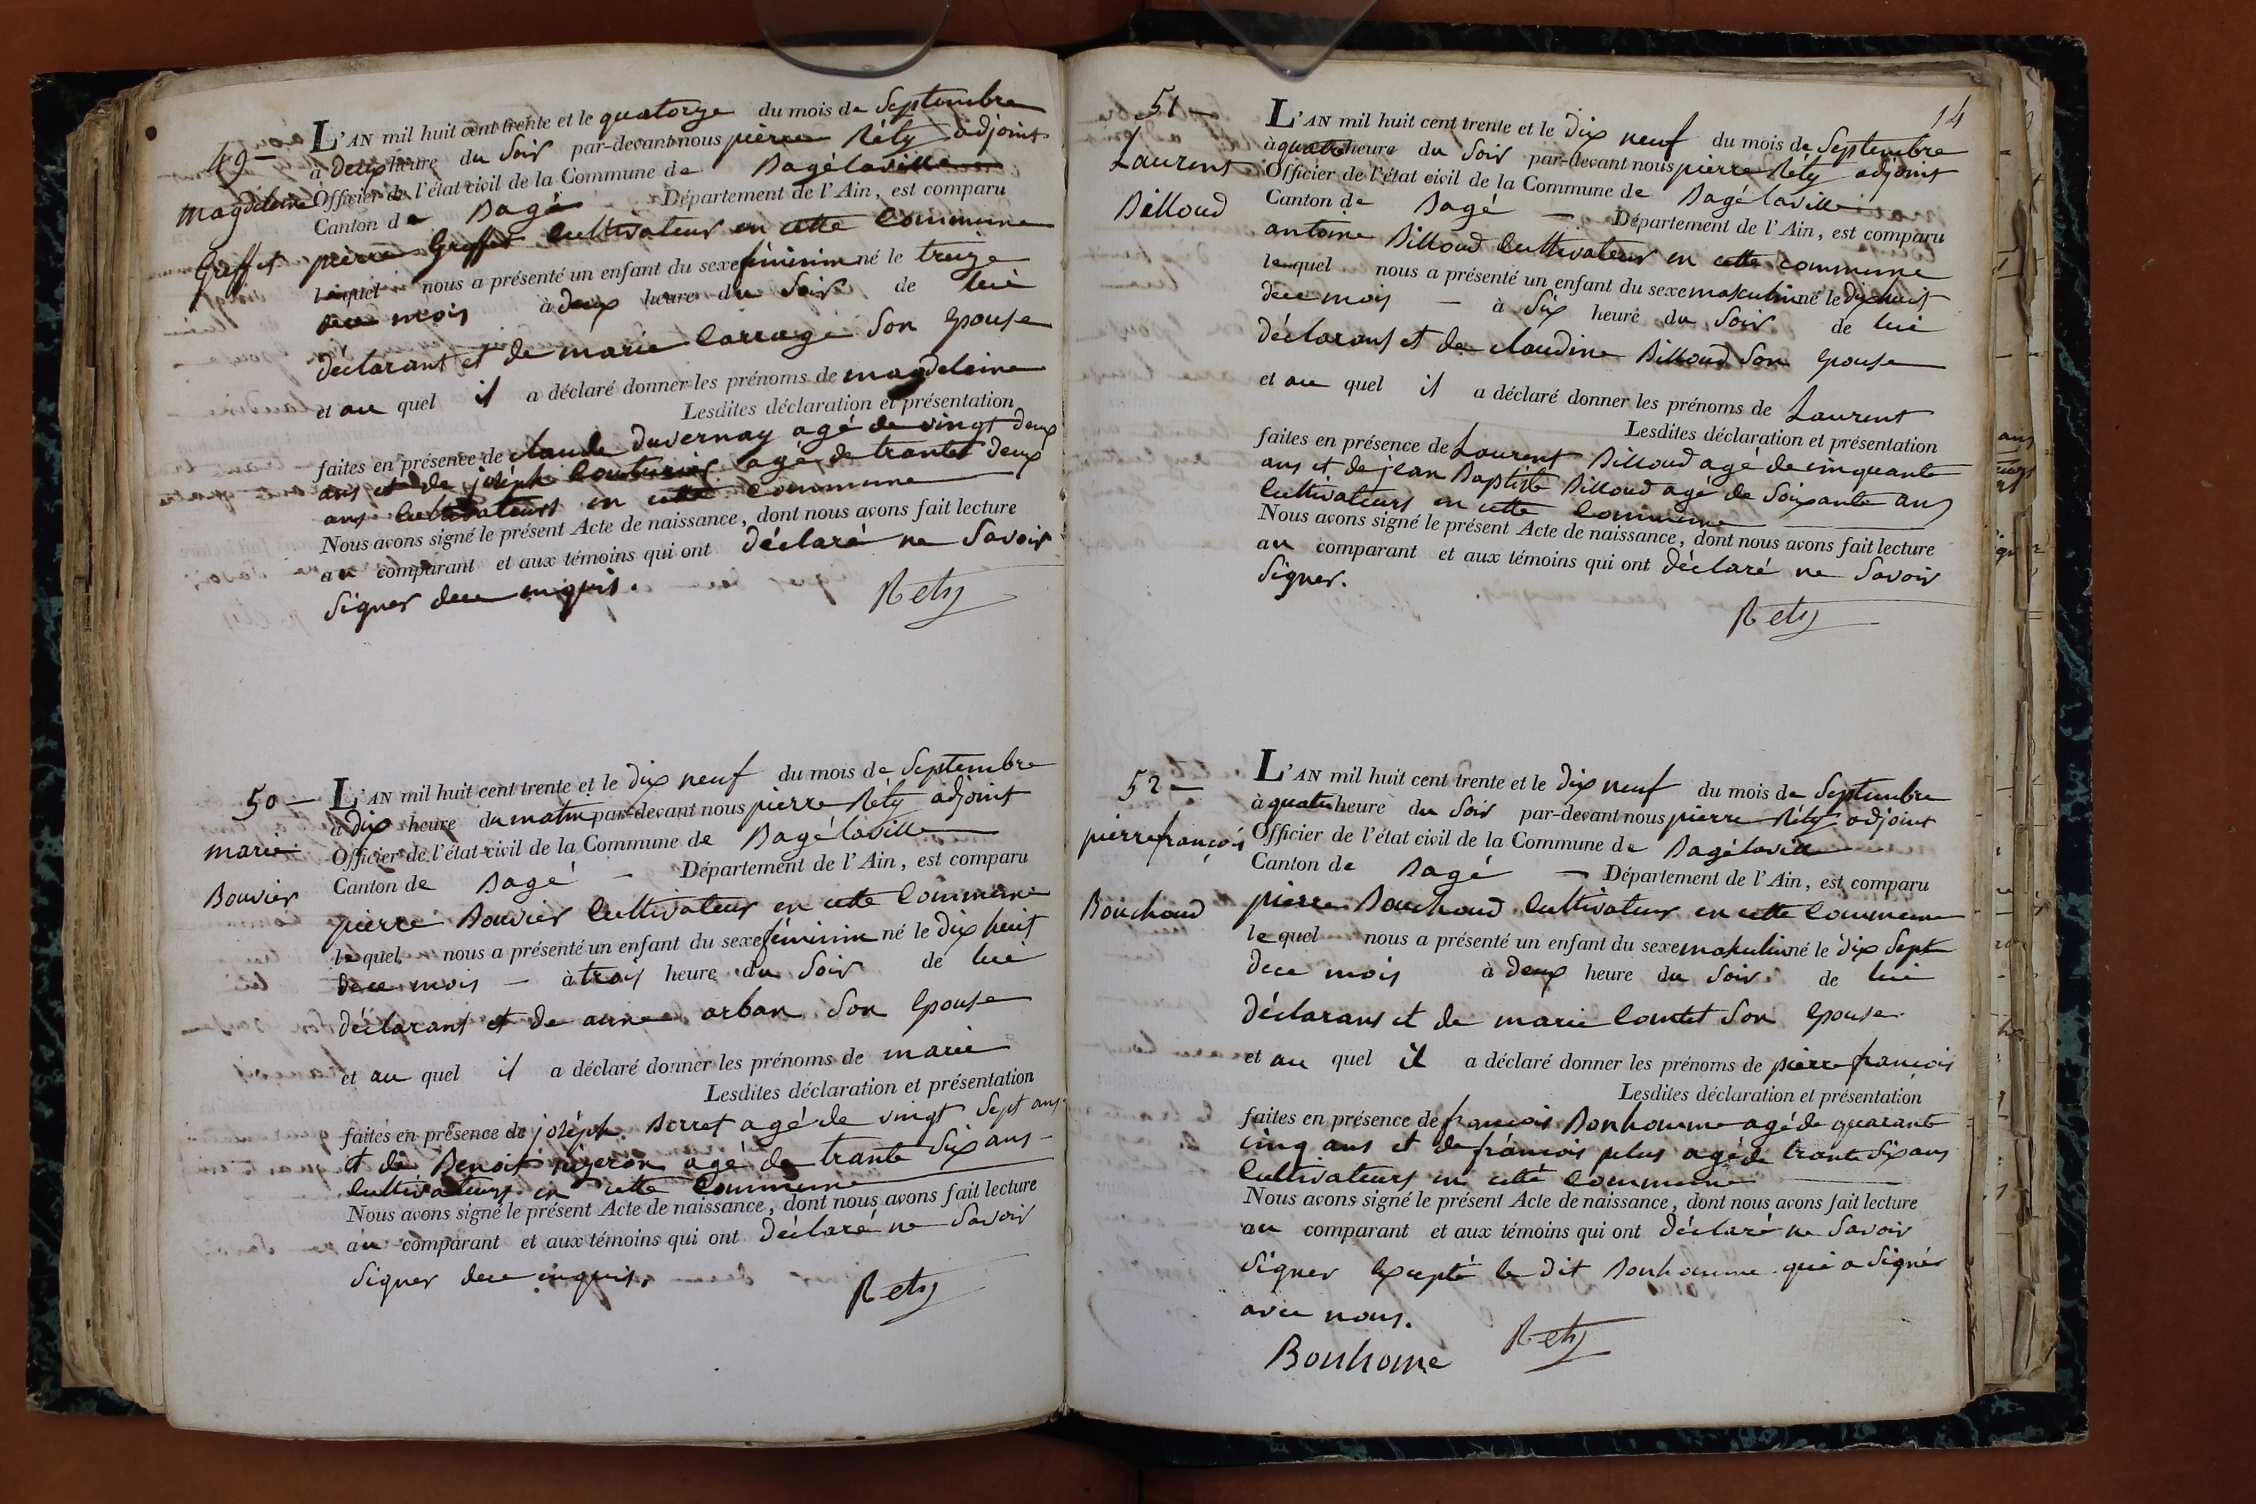 49 —
magdeleine
Greffet
L'AN mil huit cent trente et le quatorze du mois de Septembre
à deux heure du Soir par-devant nous pierre Réty adjoint
Officier de l'état civil de la Commune de Bagélaville
Canton de Bagé Département de l'Ain, est comparu
pierre Greffet Cultivateur en cette Commune
lequel nous a présenté un enfant du sexe féminin né le treize
dece mois à deux heure du Soir de lui
déclarant et de marie Carrage Son Epouse
et au quel il a déclaré donner les prénoms de magdeleine
Lesdites déclaration et présentation
faites en présence de claude duvernay agé de vingt deux
ans et de joséph Couturier agé de trante deux
ans Cultivateurs en cette Commune
Nous avons signé le présent Acte de naissance, dont nous avons fait lecture
au comparant et aux témoins qui ont déclaré ne Savoir
Signer dece enquis.
Rety
50 —
marie
Bouvier
L'AN mil huit cent trente et le dix neuf du mois de Septembre
à dix heure du matin par-devant nous pierre Réty adjoint
Officier de l'état civil de la Commune de Bagélaville
Canton de Bagé — Département de l'Ain, est comparu
pierre Bouvier Cultivateur en cette Commune
lequel nous a présenté un enfant du sexe féminin né le dix huit
dece mois — à trois heure du Soir de lui
déclarant et de anne arban Son Epouse
et au quel il a déclaré donner les prénoms de marie
Lesdites déclaration et présentation
faites en présence de joséph Berret agé de vingt Sept ans
et de Benoit pigeron agé de trante Six ans —
Cultivateurs en cette Commune
Nous avons signé le présent Acte de naissance, dont nous avons fait lecture
au comparant et aux témoins qui ont déclaré ne Savoir
Signer dece enquis.
Rety
14
51 —
Laurent
Billoud
L'AN mil huit cent trente et le dix neuf du mois de Septembre
à quatre heure du Soir par-devant nous pierre Réty adjoint
Officier de l'état civil de la Commune de Bagélaville
Canton de Bagé — Département de l'Ain, est comparu
antoine Billoud Cultivateur en cette commune
lequel nous a présenté un enfant du sexe masculin né le dixhuit
dece mois — à Six heure du Soir de lui
déclarans et de claudine Billoud Son Epouse
et au quel il a déclaré donner les prénoms de Laurent
Lesdites déclaration et présentation
faites en présence de Laurent Billoud agé de cinquante
ans et de jean Baptiste Billoud agé de Soixante ans
Cultivateurs en cette Commune
Nous avons signé le présent Acte de naissance, dont nous avons fait lecture
au comparant et aux témoins qui ont déclaré ne Savoir
Signer.
Rety
52 —
pierre françois
Bouchoud
L'AN mil huit cent trente et le dix neuf du mois de Septembre
à quatre heure du Soir par-devant nous pierre Réty adjoint
Officier de l'état civil de la Commune de Bagélaville
Canton de Bagé — Département de l'Ain, est comparu
pierre Bouchoud Cultivateur en cette Commune
lequel nous a présenté un enfant du sexe masculin né le dix Sept
dece mois à deux heure du Soir de lui
déclarans et de marie Comtet Son Epouse
et au quel il a déclaré donner les prénoms de pierre françois
Lesdites déclaration et présentation
faites en présence de françois Bonhomme agé de quarante
cinq ans et de françois plus agé de trante Six ans
Cultivateurs en cette Commune
Nous avons signé le présent Acte de naissance, dont nous avons fait lecture
au comparant et aux témoins qui ont déclaré ne Savoir
Signer Excepté le dit Bonhomme qui a Signér
avec nous.
Bonhome Rety